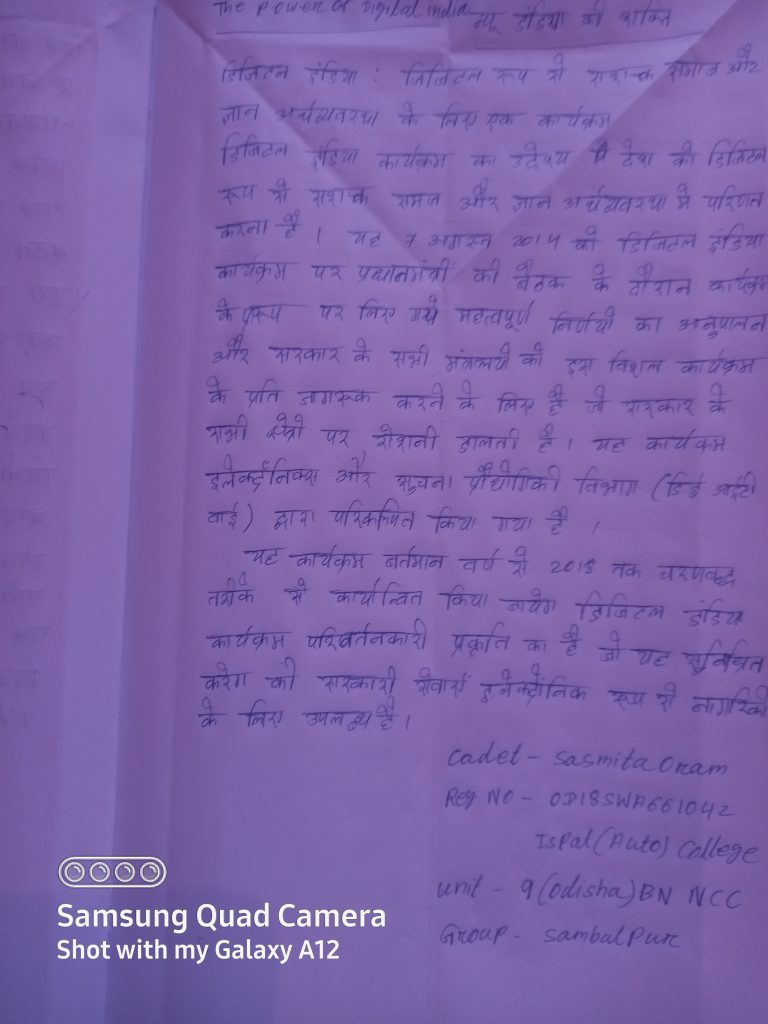 The Power of Digital India न्यू इंडिया की शक्ति
डिजिटल इंडिया : जिजिटल रूप से सशक्त समाज और
ज्ञान अर्थव्यवस्था के लिए एक कार्यक्रम
डिजिटल इंडिया कार्यक्रम का उदेश्य देश को डिजिटल
रूप से सशक्त समाज और ज्ञान अर्थव्यवस्था मे परिणत
करना है । यह 7 अगस्त 2014 को डिजिटल इंडिया
कार्यक्रम पर प्रधानमंत्री की बैठक के दौरान कार्यक्रम
के प्ररूप पर लिए गये महत्वपूर्ण निर्णयो का अनुपालन
और सरकार के सभी मंत्रालयो को इस विशाल कार्यक्रम
के प्रति जागरूक करने के लिए है जो सरकार के
सभी क्षेत्रो पर रोशनी डालती है । यह कार्यक्रम
इलेक्ट्रॉनिक्स और सूचना प्रौद्योगिकी विभाग (डिई आईटी
वाई) द्वारा परिकल्पित किया गया है ।
यह कार्यक्रम बर्तमान वर्ष से 2018 तक चरणबद्ध
तरीके से कार्यान्वित किया जायेग डिजिटल इंडिय
कार्यक्रम परिवर्तनकारी प्रकृति का है जो यह सुनिश्चित
करेग की सरकारी सेवाएं इलेक्ट्रॉनिक रूप से नागरिको
के लिए उपलब्ध है ।
Cadet - Sasmita Oram
Reg NO - OD18SWA661042
Ispat (Auto) College
unit - 9 (odisha) BN NCC
Group - Sambalpur
Samsung Quad Camera
Shot with my Galaxy A12